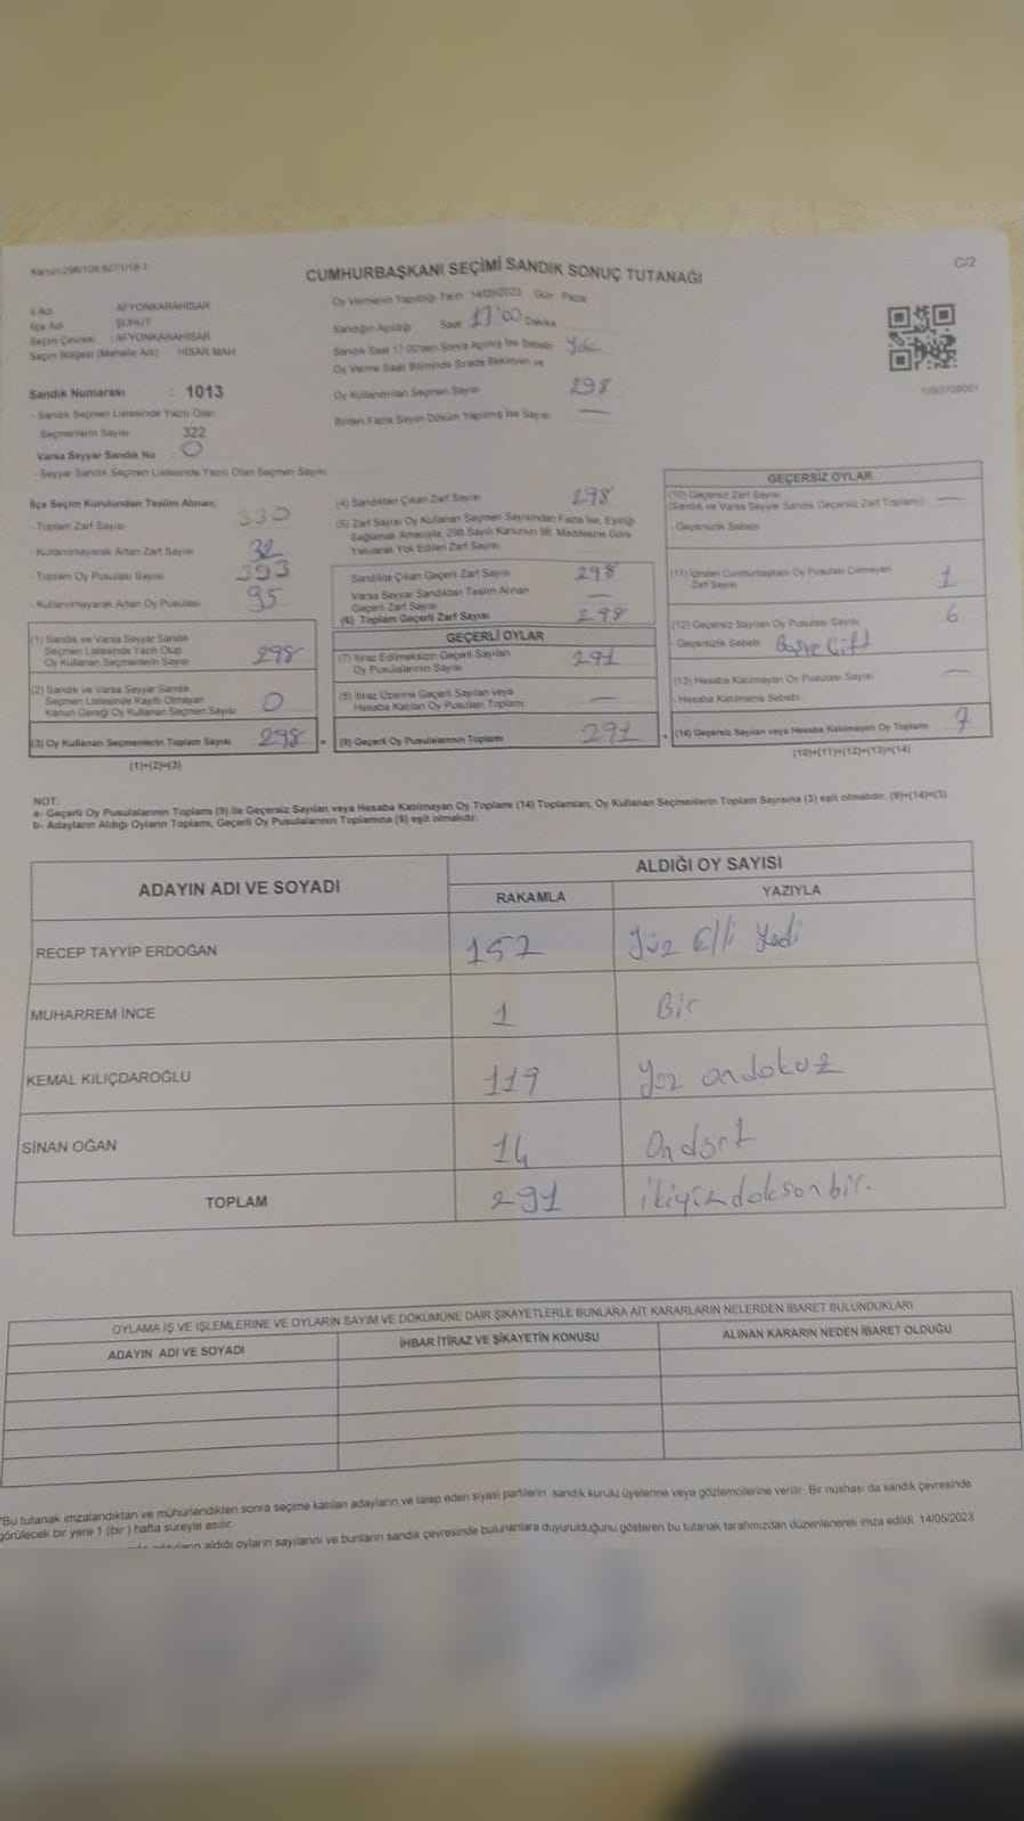 CUMHURBAŞKANI SEÇİMİ SANDIK SONUÇ TUTANAĞI
C/2
İl Adı AFYONKARAHİSAR
İlçe Adı ŞUHUT
Seçim Çevresi : AFYONKARAHİSAR
Seçim Bölgesi (Mahalle Adı) HİSAR MAH
Sandık Numarası : 1013
- Sandık Seçmen Listesinde Yazılı Olan
Seçmenlerin Sayısı 322
Varsa Seyyar Sandık No 0
- Seyyar Sandık Seçmen Listesinde Yazılı Olan Seçmen Sayısı
Oy Vermenin Yapıldığı Tarih 14/05/2023 Gün Pazar
Sandığın Açıldığı Saat 17:00 Dakika
Sandık Saat 17.00'den Sonra Açılmış İse Sebebi
Oy Verme Saati Bitiminde Sırada Bekleyen ve
Oy Kullandırılan Seçmen Sayısı 298
Birden Fazla Sayım Döküm Yapılmış İse Sayısı —
İlçe Seçim Kurulundan Teslim Alınan;
- Toplam Zarf Sayısı 330
- Kullanılmayarak Artan Zarf Sayısı 32
- Toplam Oy Pusulası Sayısı 393
- Kullanılmayarak Artan Oy Pusulası 95
(1) Sandık ve Varsa Seyyar Sandık
Seçmen Listesinde Yazılı Olup
Oy Kullanan Seçmenlerin Sayısı 298
(2) Sandık ve Varsa Seyyar Sandık
Seçmen Listesinde Kayıtlı Olmayan
Kanun Gereği Oy Kullanan Seçmen Sayısı 0
(3) Oy Kullanan Seçmenlerin Toplam Sayısı 298
(1)+(2)=(3)
(4) Sandıktan Çıkan Zarf Sayısı 298
(5) Zarf Sayısı Oy Kullanan Seçmen Sayısından Fazla İse, Eşitliği
Sağlamak Amacıyla, 298 Sayılı Kanunun 98. Maddesine Göre
Yakılarak Yok Edilen Zarf Sayısı
Sandıktan Çıkan Geçerli Zarf Sayısı 298
Varsa Seyyar Sandıktan Teslim Alınan
Geçerli Zarf Sayısı —
(6) Toplam Geçerli Zarf Sayısı 298
GEÇERLİ OYLAR
(7) İtiraz Edilmeksizin Geçerli Sayılan
Oy Pusulalarının Sayısı 291
(8) İtiraz Üzerine Geçerli Sayılan veya
Hesaba Katılan Oy Pusulası Toplamı —
(9) Geçerli Oy Pusulalarının Toplamı 291
GEÇERSİZ OYLAR
(10) Geçersiz Zarf Sayısı
(Sandık ve Varsa Seyyar Sandık Geçersiz Zarf Toplamı) —
- Geçersizlik Sebebi
(11) İçinden Cumhurbaşkanı Oy Pusulası Çıkmayan
Zarf Sayısı 1
(12) Geçersiz Sayılan Oy Pusulası Sayısı 6
- Geçersizlik Sebebi
(13) Hesaba Katılmayan Oy Pusulası Sayısı —
- Hesaba Katılmama Sebebi
(14) Geçersiz Sayılan veya Hesaba Katılmayan Oy Toplamı 7
(10)+(11)+(12)+(13)=(14)
NOT:
a- Geçerli Oy Pusulalarının Toplamı (9) ile Geçersiz Sayılan veya Hesaba Katılmayan Oy Toplamı (14) Toplamları, Oy Kullanan Seçmenlerin Toplam Sayısına (3) eşit olmalıdır. (9)+(14)=(3)
b- Adayların Aldığı Oyların Toplamı, Geçerli Oy Pusulalarının Toplamına (9) eşit olmalıdır.
ADAYIN ADI VE SOYADI
ALDIĞI OY SAYISI
RAKAMLA YAZIYLA
RECEP TAYYİP ERDOĞAN 157 Yüz Elli Yedi
MUHARREM İNCE 1 Bir
KEMAL KILIÇDAROĞLU 119 Yüz ondokuz
SİNAN OĞAN 14 Ondört
TOPLAM 291 ikiyüzdoksanbir.
OYLAMA İŞ VE İŞLEMLERİNE VE OYLARIN SAYIM VE DÖKÜMÜNE DAİR ŞİKAYETLERLE BUNLARA AİT KARARLARIN NELERDEN İBARET BULUNDUKLARI
ADAYIN ADI VE SOYADI İHBAR İTİRAZ VE ŞİKAYETİN KONUSU ALINAN KARARIN NEDEN İBARET OLDUĞU
"Bu tutanak imzalandıktan ve mühürlendikten sonra seçime katılan adayların ve talep eden siyasi partilerin sandık kurulu üyelerine veya gözlemcilerine verilir. Bir nüshası da sandık çevresinde
görülecek bir yere 1 (bir) hafta süreyle asılır.
aldığı oyların sayılarını ve bunların sandık çevresinde bulunanlara duyurulduğunu gösteren bu tutanak tarafımızdan düzenlenerek imza edildi. 14/05/2023